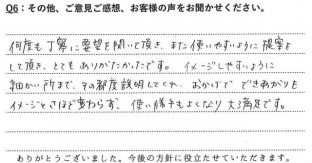 Q6：その他、ご意見ご感想、お客様の声をお聞かせください。
何度も丁寧に要望を聞いて頂き、また使いやすいように提案よ
して頂き、とてもありがたかったです。イメージしやすいように
細かい所まで、その都度説明してくれ、おかげで できあがりも
イメージとさほど変わらず、使い勝手もよくなり大満足です。
ありがとうございました。今後の方針に役立たせていただきます。